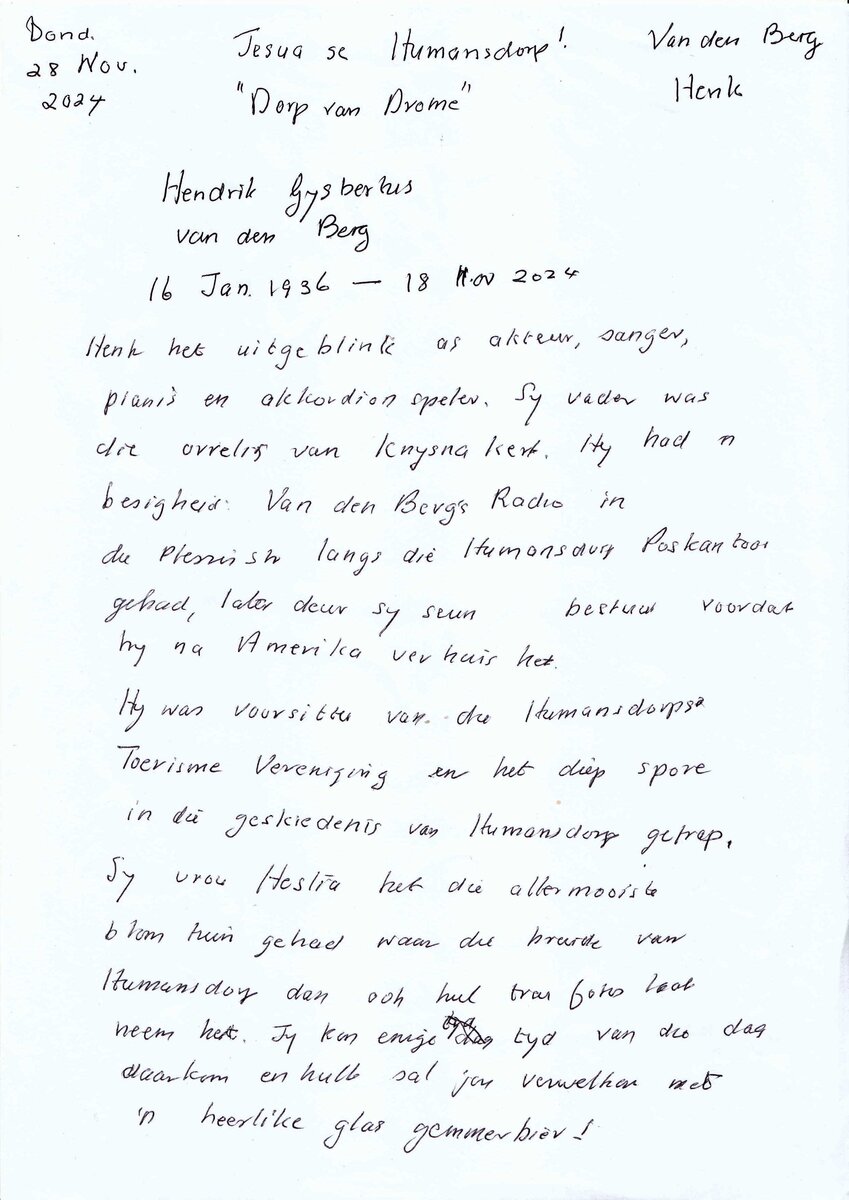 Dond. 28 Nov. 2024
Jesua se Humansdorp!
"Dorp van Drome"
Van den Berg
Henk
Hendrik Gysbertus
van den Berg
16 Jan. 1936 — 18 Nov 2024
Henk het uitgeblink as akteur, sanger,
pianis en akkordion speler. Sy vader was
die orrelis van Knysna kerk. Hy had 'n
besigheid: Van den Berg's Radio in
du Plessis str langs die Humansdorp Poskantoor
gehad, later deur sy seun bestuur voordat
hy na Amerika verhuis het.
Hy was voorsitter van die Humansdorpse
Toerisme Vereniging en het diep spore
in die geskiedenis van Humansdorp getrap.
Sy vrou Hestia het die allermooiste
blom tuin gehad waar die bruide van
Humansdorp dan ook hul trou fotos laat
neem het. Jy kon enige tyd van die dag
daarkom en hulle sal jou verwelkom met
'n heerlike glas gemmerbier!